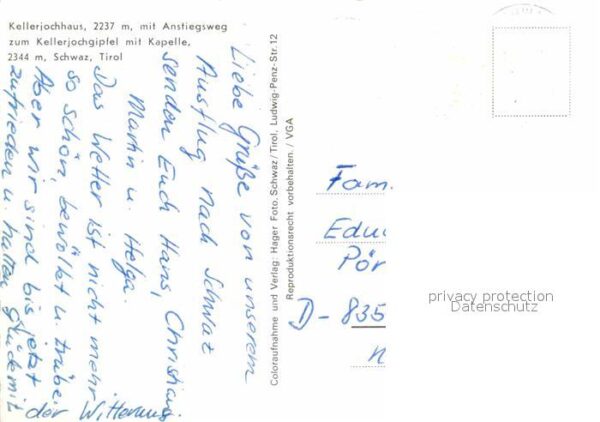 Kellerjochhaus, 2237 m, mit Anstiegsweg
zum Kellerjochgipfel mit Kapelle,
2344 m, Schwaz, Tirol
Liebe Grüße von unserem
Ausflug nach Schwaz
senden Euch Hans, Christiane
Martin u. Helga.
Das Wetter ist nicht mehr
so schön, bewölkt u. trübe.
Aber wir sind bis jetzt
zufrieden u. hatten Glück mit
der Witterung.
Coloraufnahme und Verlag: Hager Foto. Schwaz/Tirol, Ludwig-Penz-Str. 12
Reproduktionsrecht vorbehalten. / VGA
Fam.
Edu
Pör
D-835
privacy protection
Datenschutz